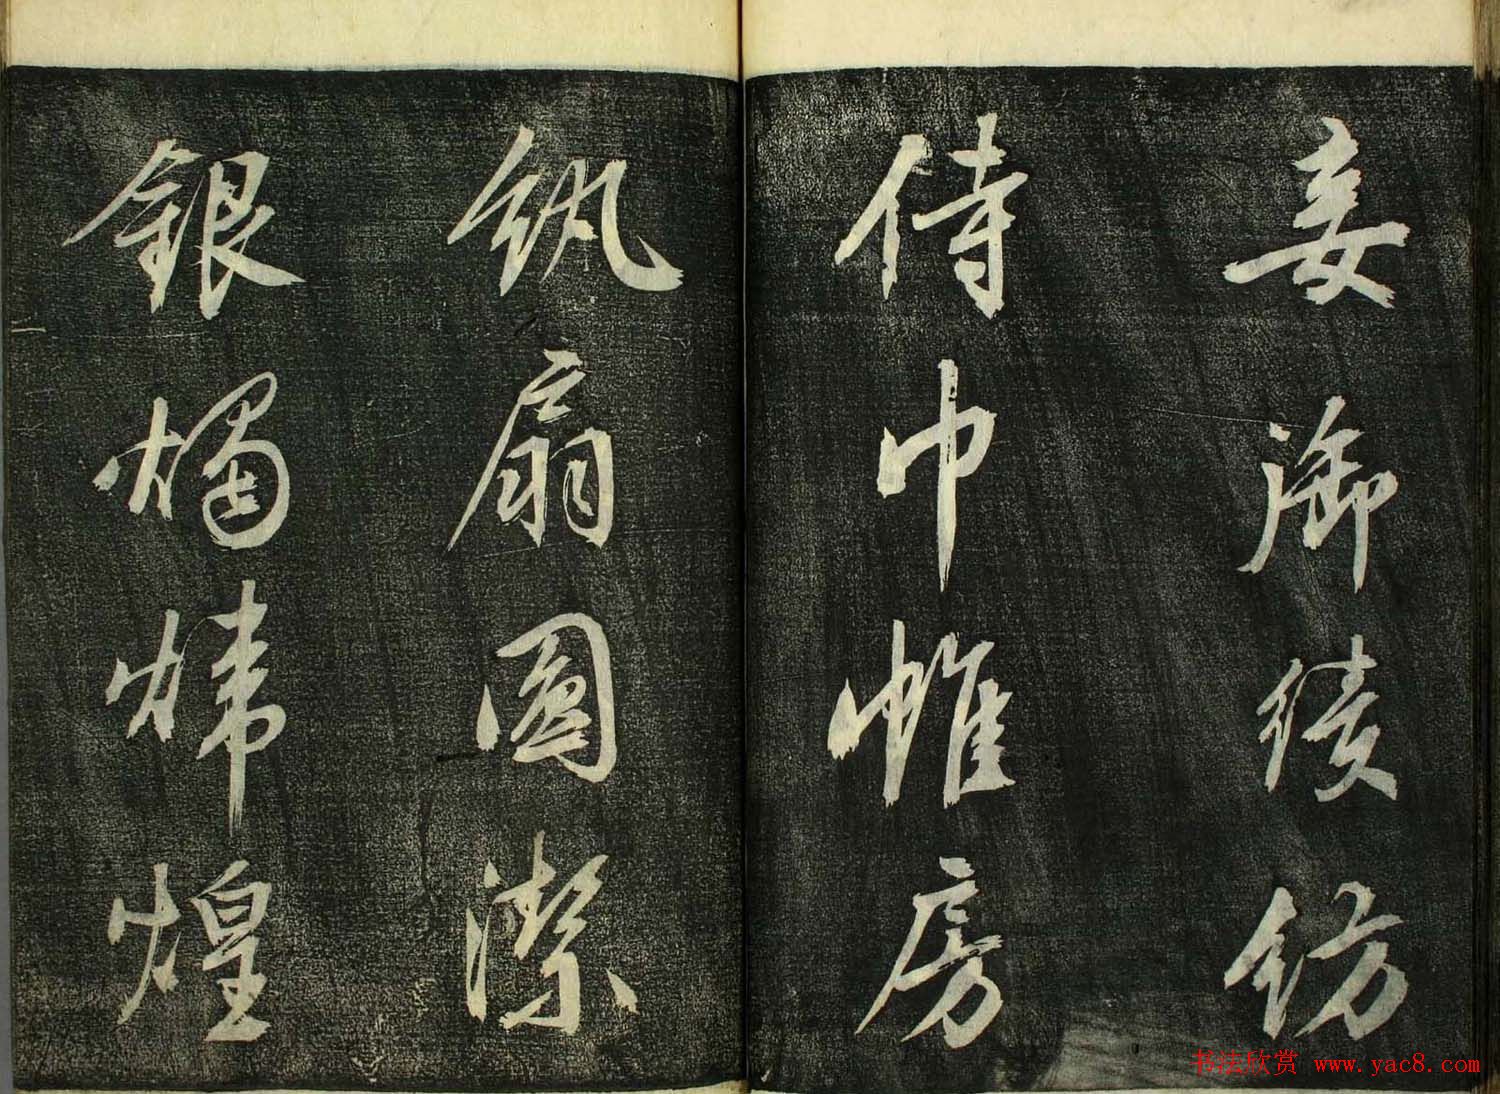 妾御績紡
侍巾帷房
紈扇圓潔
銀燭煒煌
书法欣赏 www.yac8.com